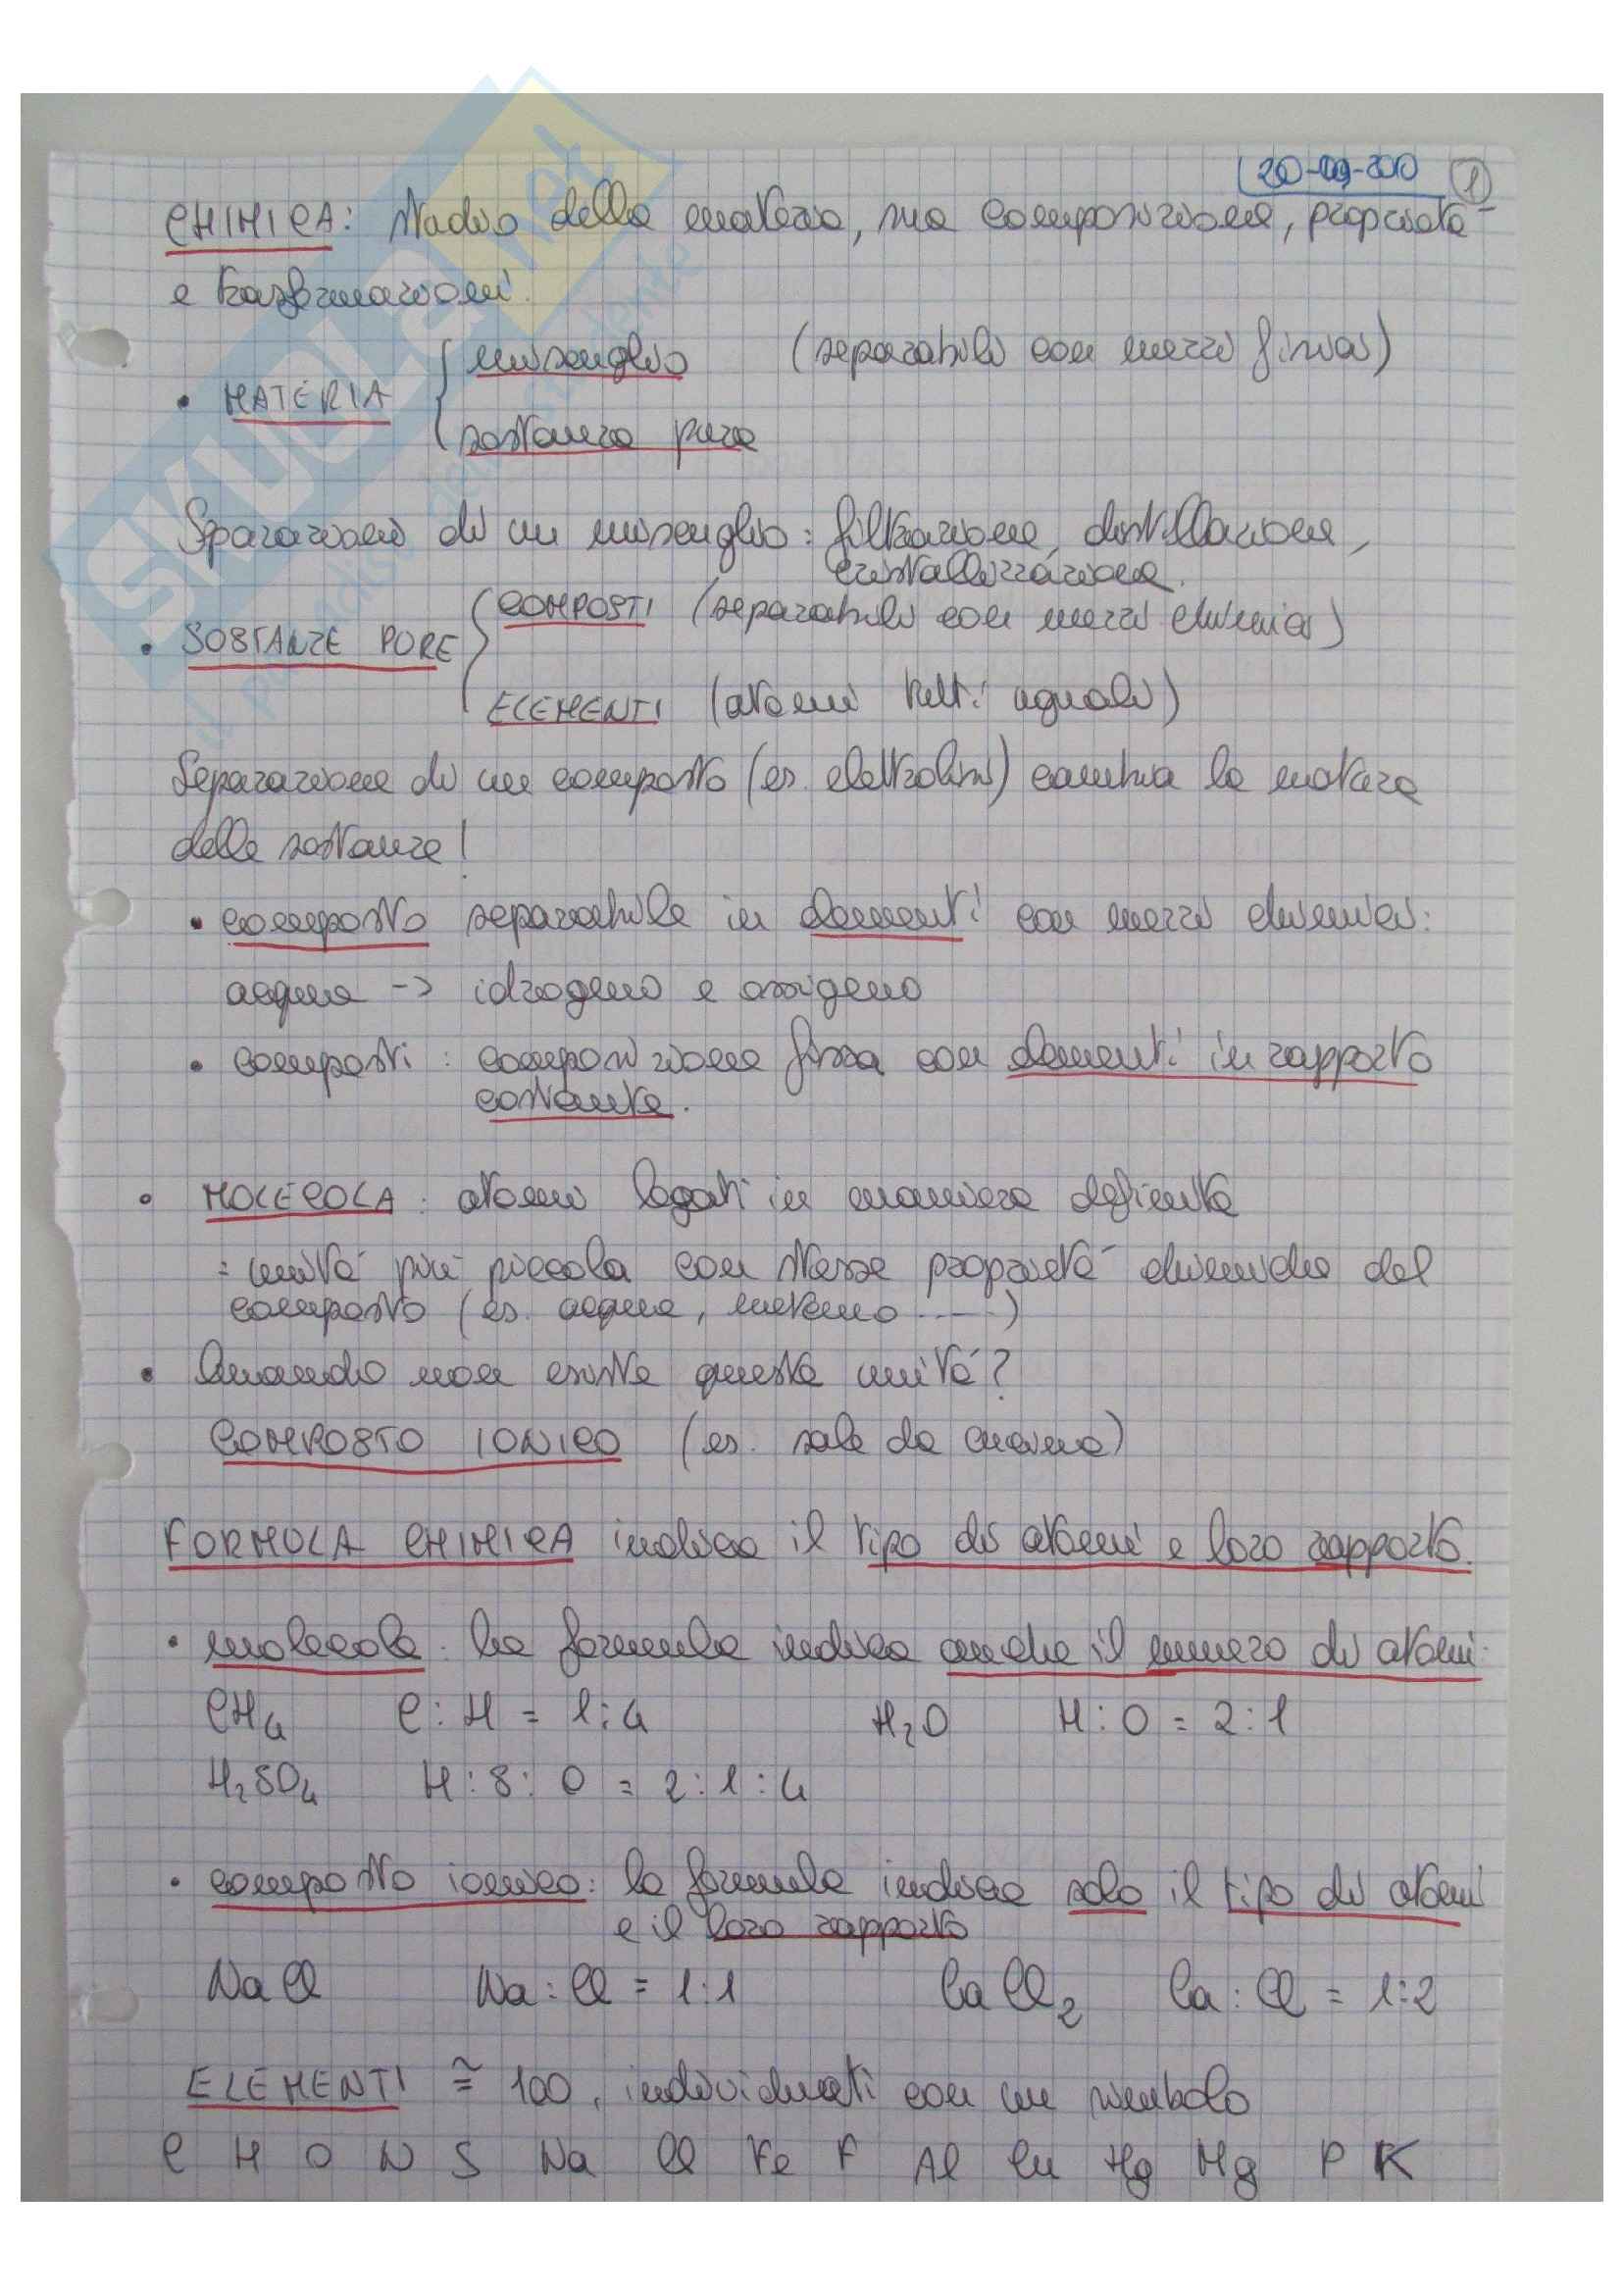 20-09-2010 1
CHIMICA: studio della materia, sua composizione, proprietà
e trasformazioni.
miscuglio (separabili con mezzi fisici)
• MATERIA
sostanza pura
Sparazioni di un miscuglio: filtrazione, distillazione,
cristallizzazione.
COMPOSTI (separabili con mezzi chimici)
• SOSTANZE PURE
ELEMENTI (atomi tutti uguali)
Separazione di un composto (es. elettrolisi) cambia la natura
delle sostanze!
• composto separabile in elementi con mezzi chimici:
acqua -> idrogeno e ossigeno
• composti: composizione fissa con elementi in rapporto
costante.
• MOLECOLA: atomi legati in maniera definita
= unità più piccola con stesse proprietà chimiche del
composto (es. acqua, metano ....)
• Quando non esiste questa unità?
COMPOSTO IONICO (es. sale da cucina)
FORMULA CHIMICA indica il tipo di atomi e loro rapporto.
• molecola: la formula indica anche il numero di atomi:
CH₄ C:H = 1:4 H₂O H:O = 2:1
H₂SO₄ H:S:O = 2:1:4
• composto ionico: la formula indica solo il tipo di atomi
e il loro rapporto
NaCl Na:Cl = 1:1 CaCl₂ Ca:Cl = 1:2
ELEMENTI ≅ 100, individuati con un simbolo
C H O N S Na Cl Fe F Al Cu Hg Mg P K
SKUOLA.net